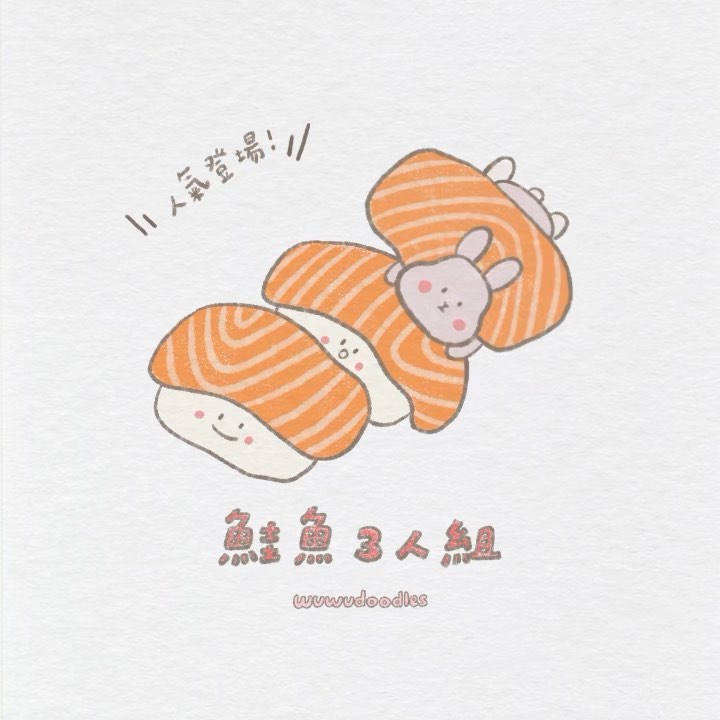 人氣登場!
鮭魚3人組
wuwudoodles